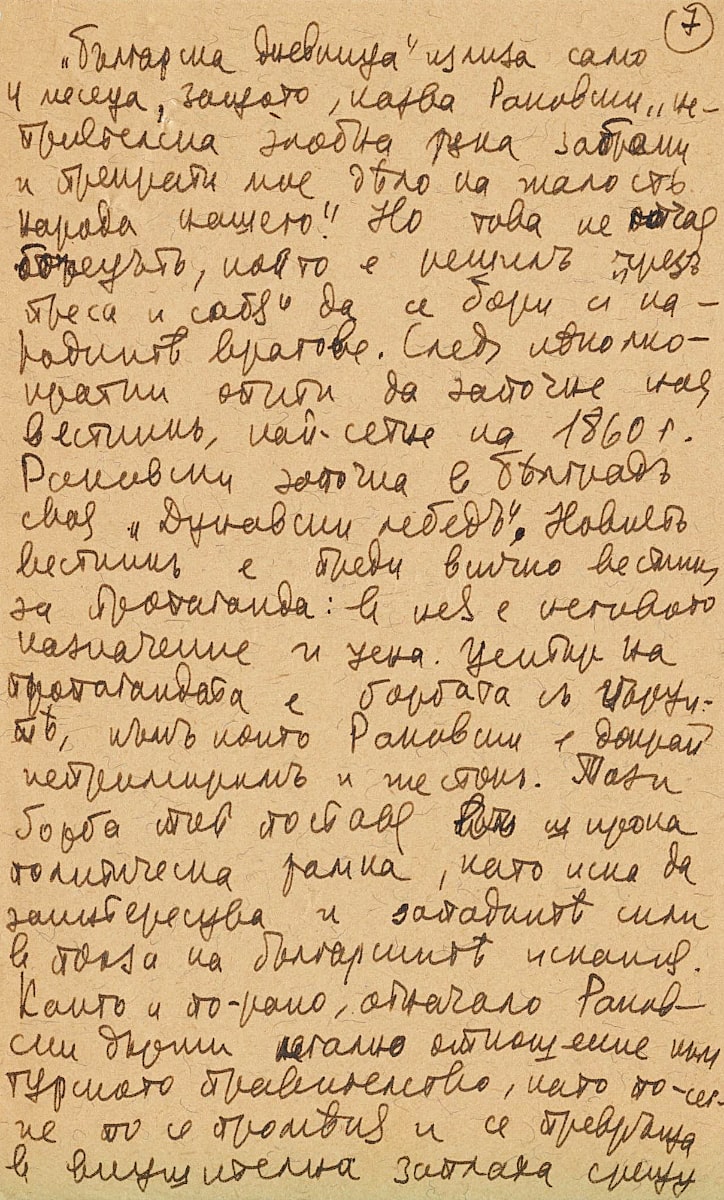 7
„Българска дневница“ излиза само
4 месеца, защото, казва Раковски, „не-
приятелска злобна ръка забрани
и прекрати мое дѣло на жалость
народа нашего“. Но това не
борецътъ, който е решилъ „чрезъ
преса и сабя“ да се бори съ на-
роднитѣ врагове. Следъ неколко-
кратни опити да започне нов
вестникъ, най-сетне на 1860 г.
Раковски започна в Бѣлградъ
своя „Дунавски лебедъ“. Новиятъ
вестникъ е преди всичко вестникъ
за пропаганда: в нея е неговото
назначение и цена. Център на
пропагандата е борбата съ турци-
тѣ, къмъ които Раковски е докрай
непримиримъ и жестокъ. Тази
борба той поставя въ широка
политическа рамка, като иска да
заинтересува и западнитѣ сили
в полза на българскитѣ искания.
Както и по-рано, отначало Раков-
ски държи легално отношение към
турското правителство, като по-сет-
не то се променя и се превръща
в внушителна заплаха срещу